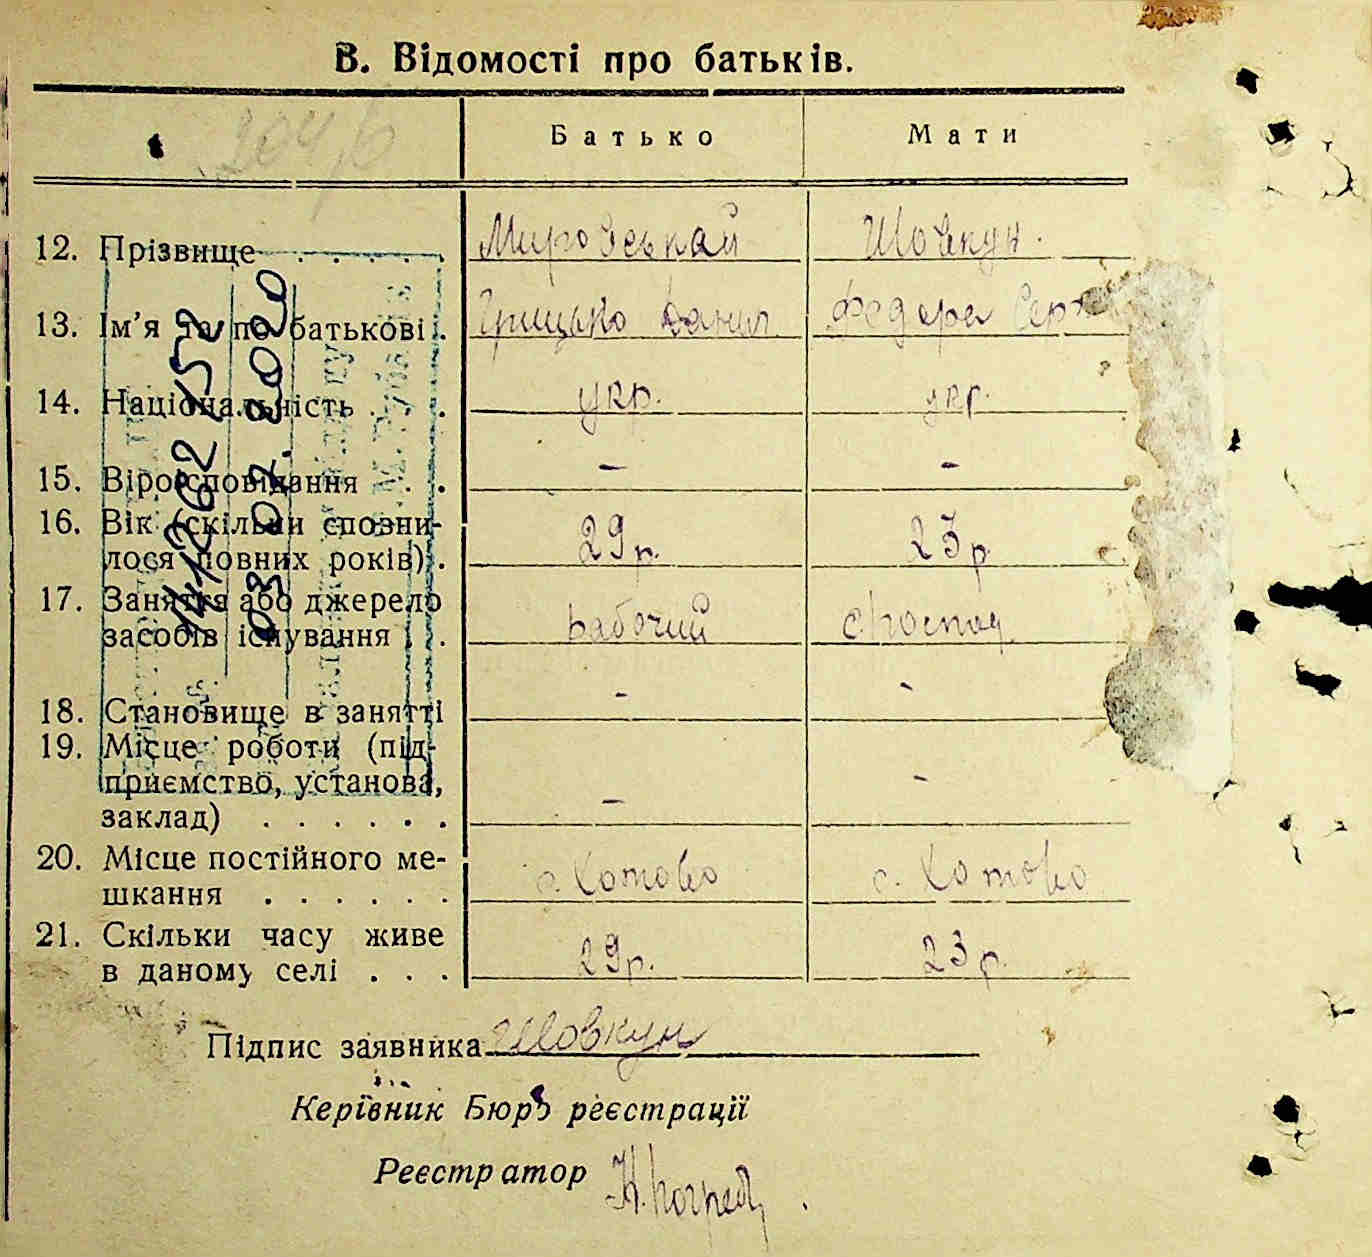 В. Відомості про батьків.
Батько Мати
12. Прізвище . . . . . Шовкун.
13. Ім’я та по батькові . Грицько Данил.
14. Національність . . . укр. укр.
15. Віроісповідання . . . – –
16. Вік (скільки сповни-
лося повних років) . 29 р. 23 р.
17. Заняття або джерело
засобів існування . . рабочий
18. Становище в занятті – –
19. Місце роботи (під-
приємство, установа,
заклад) . . . . . . – –
20. Місце постійного ме-
шкання . . . . . . с. Хотово с. Хотово
21. Скільки часу живе
в даному селі . . . 29 р. 23 р.
Підпис заявника Шовкун
Керівник Бюро реєстрації
Реєстратор